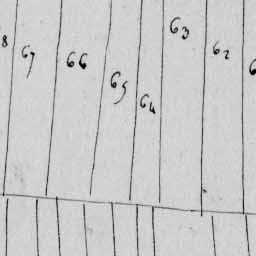 67 66 65 64 63 62